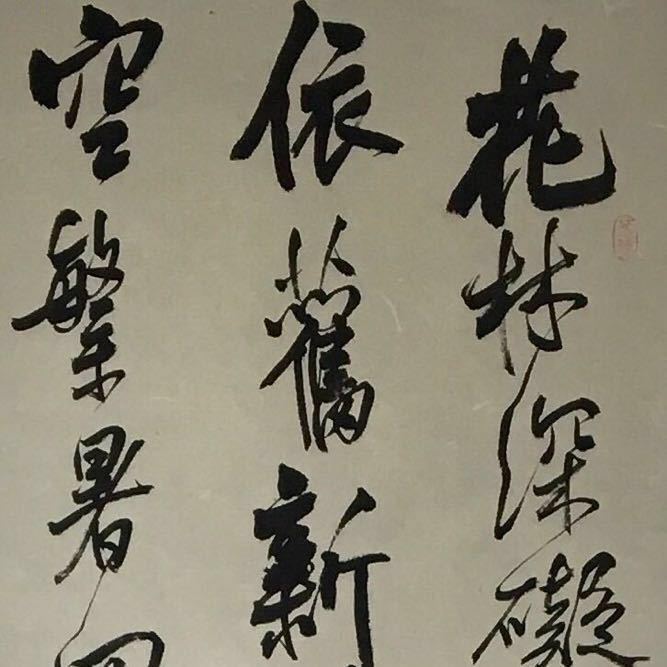 花林深礙
依舊新
空繁暑